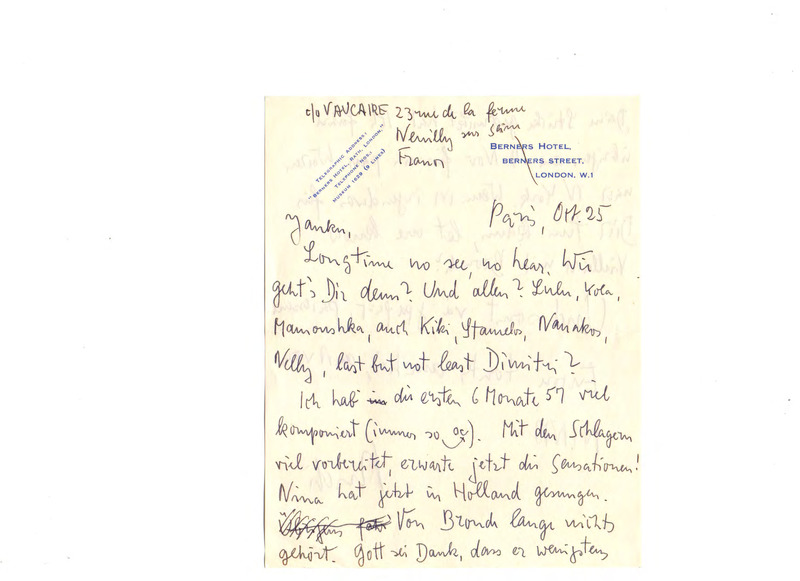 c/o VAUCAIRE 23 rue de la ferme
Neuilly sur Seine
France
TELEGRAPHIC ADDRESS:
"BERNERS HOTEL, RATH, LONDON."
TELEPHONE NOS.
MUSEUM 1629 (9 LINES)
BERNERS HOTEL,
BERNERS STREET,
LONDON, W.1
Paris, Okt. 25
Yanku,
Longtime no see, no hear. Wie
geht's Dir denn? Und allen? Lulu, Kola,
Mamoushka, auch Kiki, Stamelos, Nanakos,
Nelly, last but not least Dimitri?
Ich hab die ersten 6 Monate 57 viel
komponiert (immer so). Mit den Schlagern
viel vorbereitet, erwarte jetzt die Sensationen!
Nina hat jetzt in Holland gesungen.
Von Brondi lange nichts
gehört. Gott sei Dank, dass er wenigstens